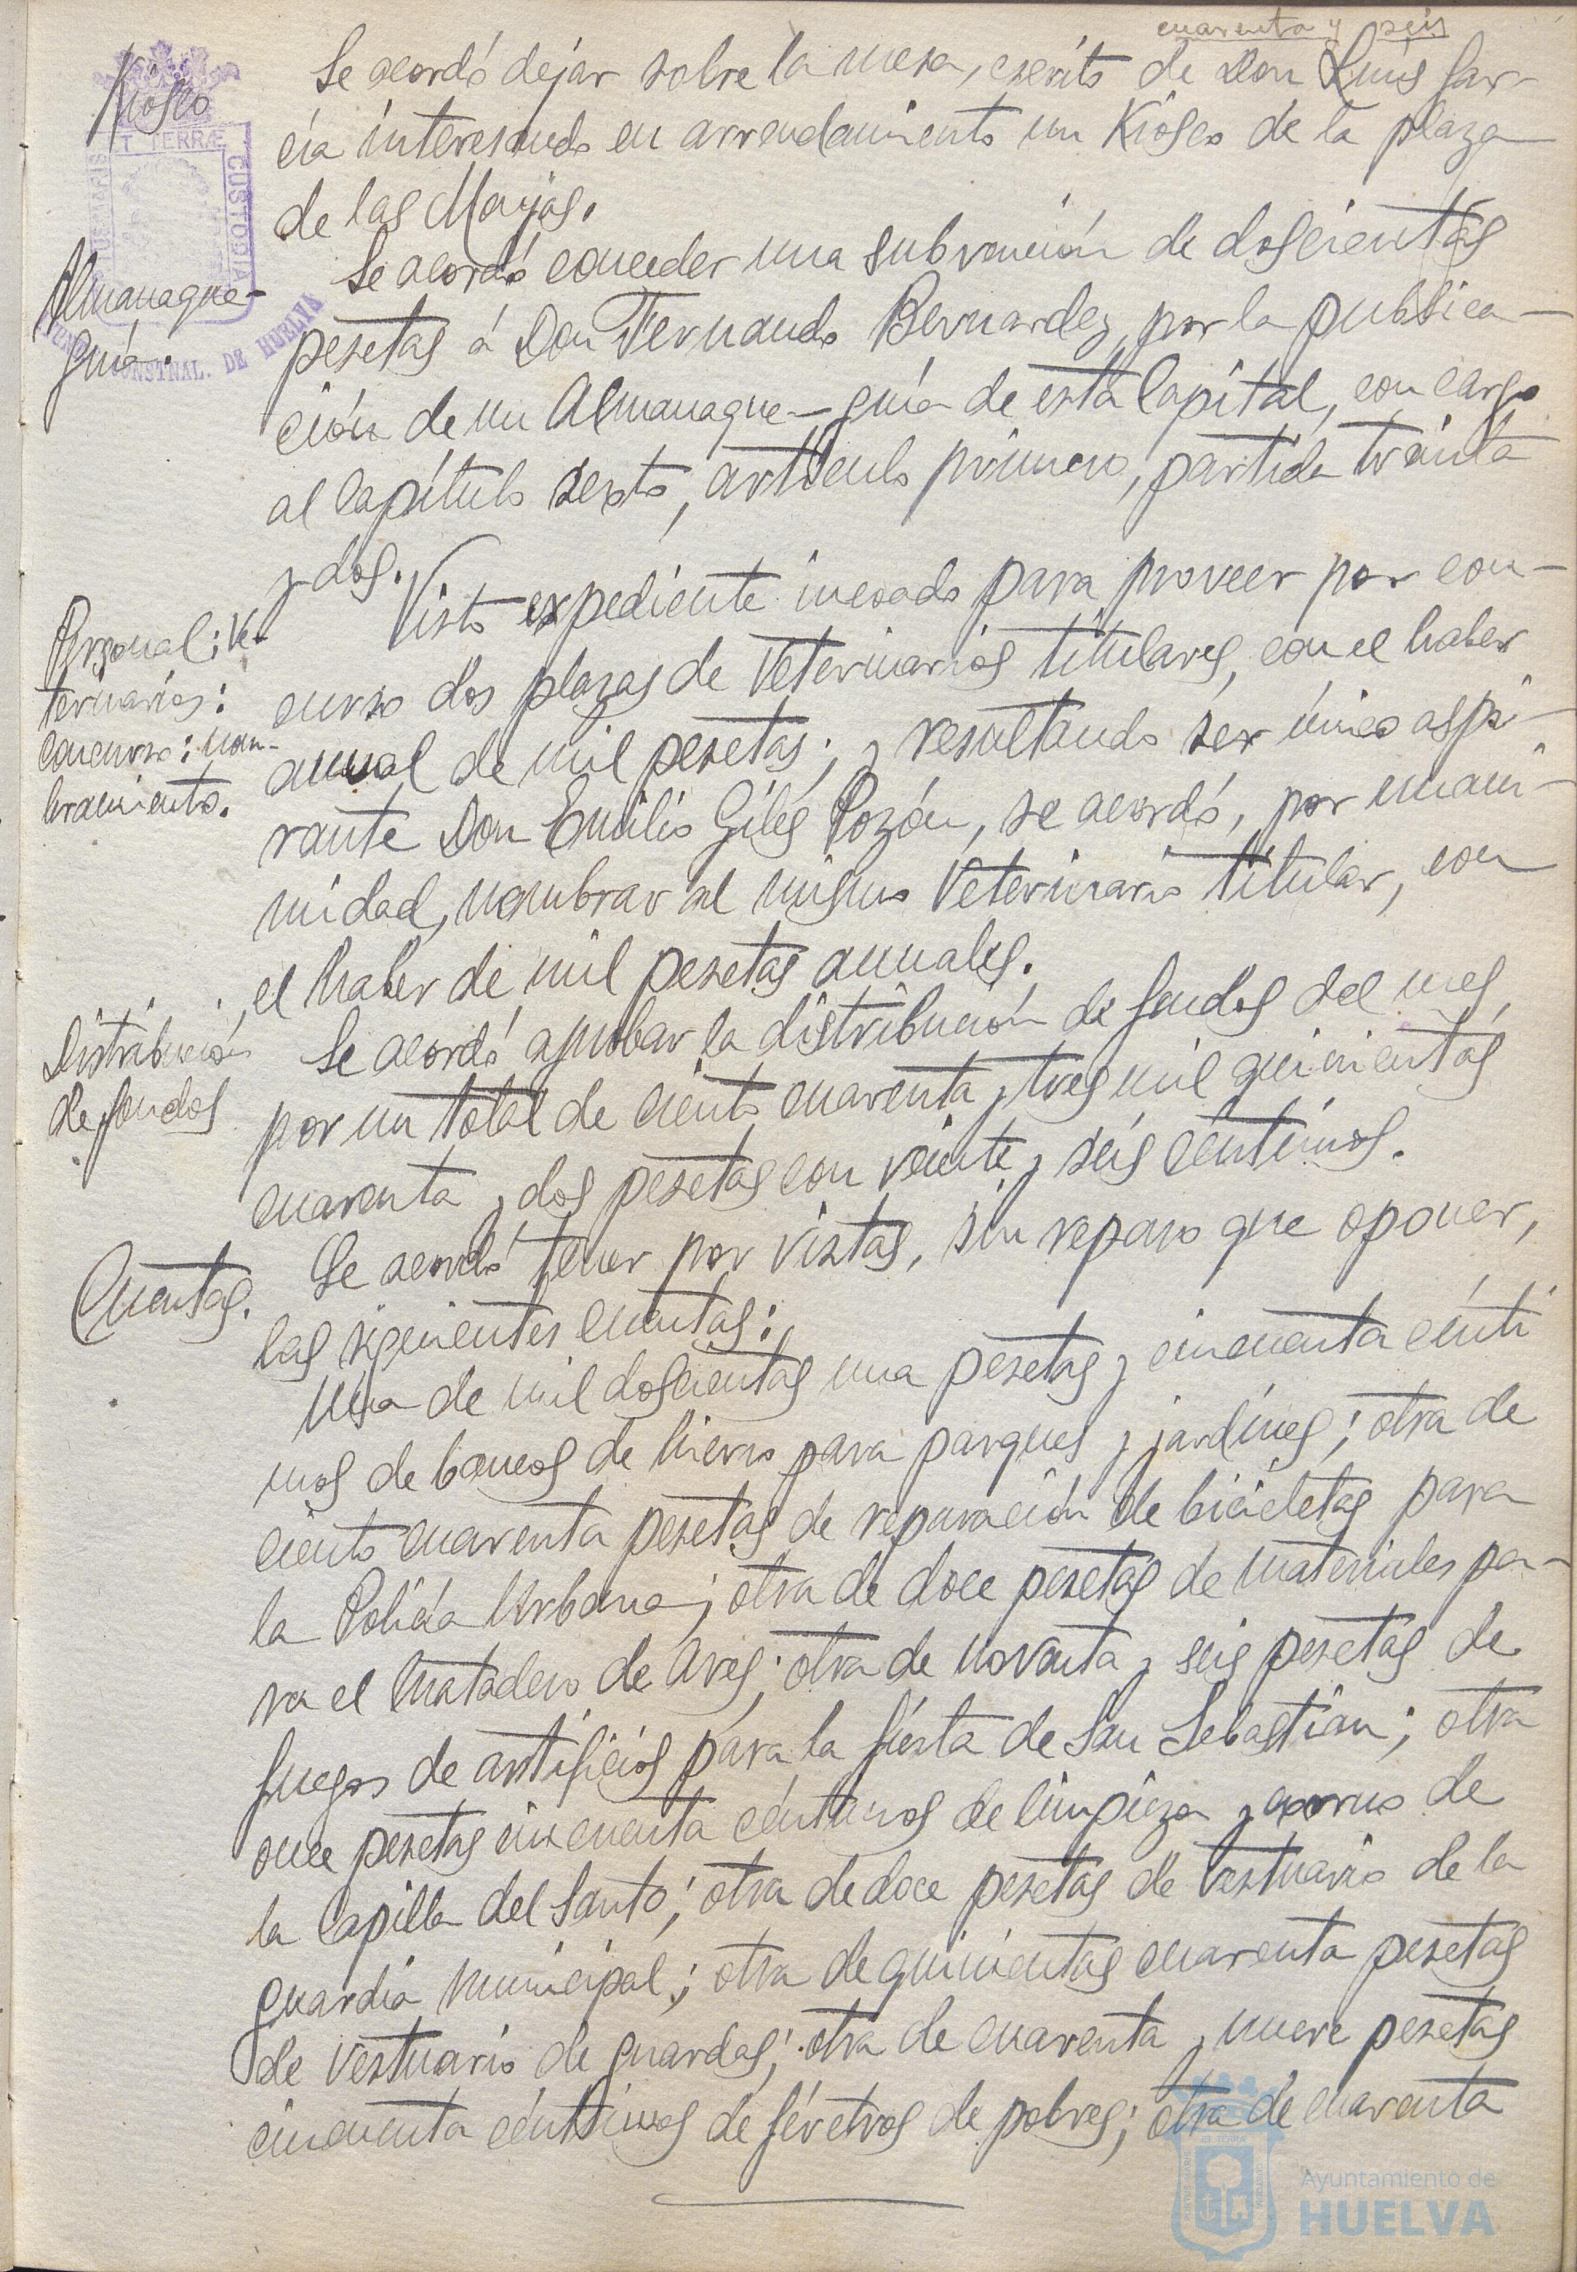 cuarenta y seis
Kiosco
Se acordó dejar sobre la mesa, escrito de Don Luis Gar-
cía interesando en arrendamiento un Kiosco de la plaza
de las Monjas.
Almanaque-
guía.
Se acordó conceder una subvención de doscientas
pesetas á Don Fernando Bernardez, por la publica-
ción de un Almanaque-guía de esta Capital, con cargo
al Capítulo sexto, artículo primero, partida treinta
y dos.
Personal: Ve-
terinarios:
concurso: nom-
bramiento.
Visto expediente incoado para proveer por con-
curso dos plazas de Veterinarios titulares, con el haber
anual de mil pesetas; y resultando ser único aspi-
rante Don Emilio Giles Pozón, se acordó, por unani-
midad, nombrar al mismo Veterinario titular, con
el haber de mil pesetas anuales.
Distribución
de fondos
Se acordó aprobar la distribución de fondos del mes,
por un total de ciento cuarenta y tres mil quinientas
cuarenta y dos pesetas con veinte y seis céntimos.
Cuentas.
Se acordó tener por vistas, sin reparo que oponer,
las siguientes cuentas:
Una de mil doscientas una pesetas y cincuenta cénti
mos de bancos de hierro para parques y jardines; otra de
ciento cuarenta pesetas de reparación de bicicletas para
la Policía Urbana; otra de doce pesetas de materiales pa-
ra el Matadero de Aves; otra de noventa y seis pesetas de
fuegos de artificios para la fiesta de San Sebastián; otra
once pesetas cincuenta céntimos de limpieza y exorno de
la Capilla del Santo; otra de doce pesetas de vestuario de la
guardia municipal; otra de quinientas cuarenta pesetas
de vestuario de guardas; otra de cuarenta y nueve pesetas
cincuenta céntimos de féretros de pobres; otra de cuarenta
T TERRÆ
CUSTODIA
CONSTNAL. DE HUELVA
Ayuntamiento de
HUELVA